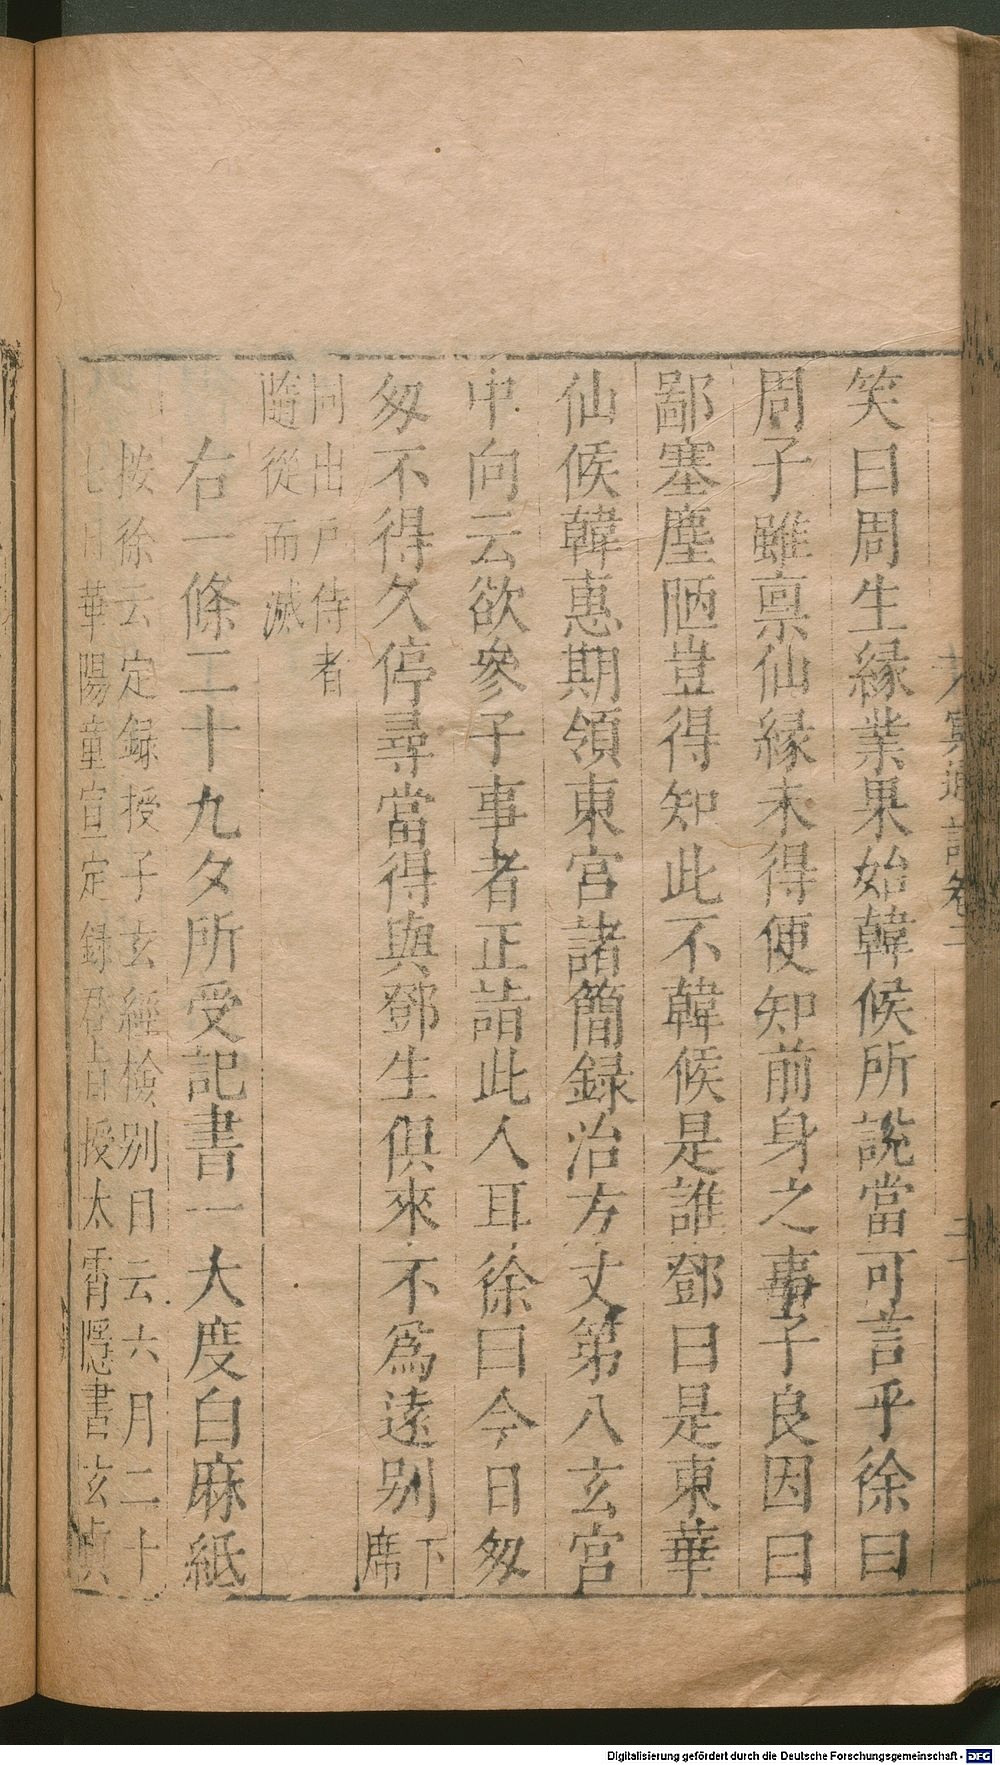 冥通記卷二
二
笑曰周生縁業果始韓候所說當可言乎徐曰
周子雖禀仙縁未得便知前身之事子良因曰
鄙塞塵陋豈得知此不韓候是誰鄧曰是東華
仙候韓惠期領東宮諸簡録治方丈第八玄宮
中向云欲參子事者正諮此人耳徐曰今日匆
匆不得久停尋當得與鄧生俱來不爲遠別下席
同出戶侍者
隨從而滅
右一條二十九夕所受記書一大度白麻紙
按徐云定録授子玄經檢別日云六月二十
七日華陽童宣定録君告授太霄隱書玄貞
Digitalisierung gefördert durch die Deutsche Forschungsgemeinschaft - DFG